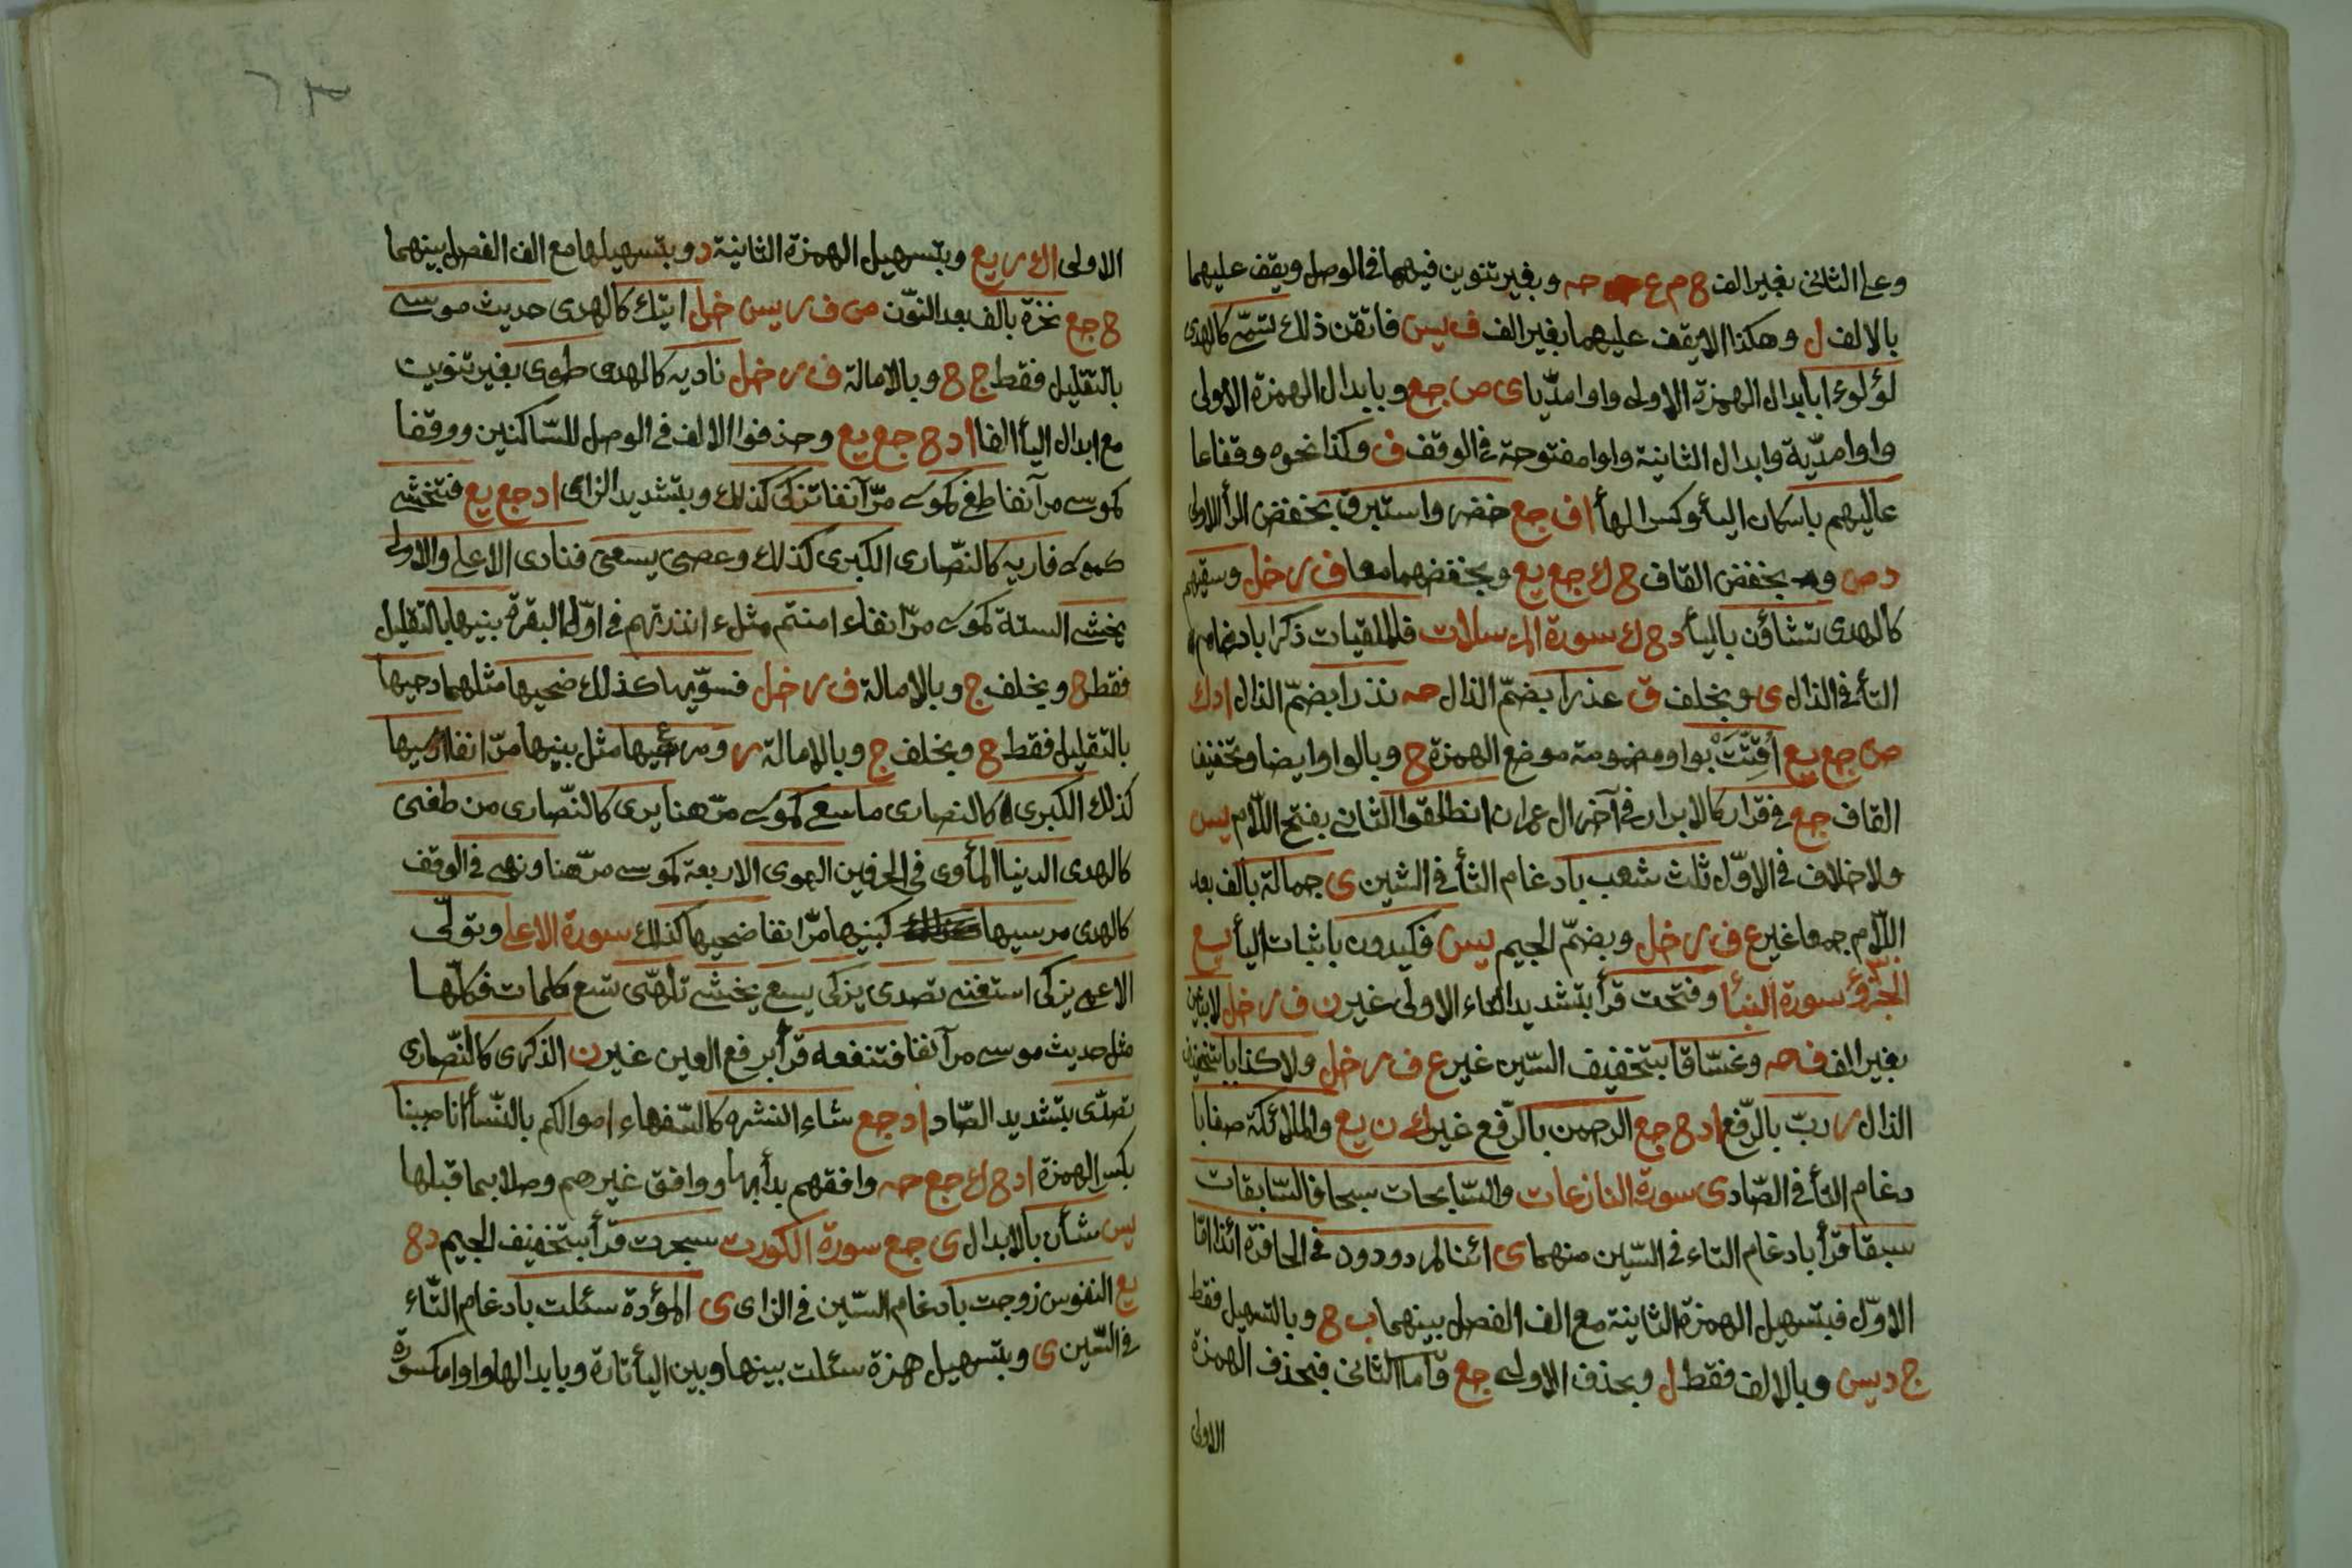 وعلى الثاني بغير الف ح م ع حه وبغير تنوين فيهما في الوصل ويقف عليهما
بالالف ل وهكذا الا يقف عليهما بغير الف ف يس فاتقن ذلك تسمى كالهدى
لؤلوءا بابدال الهمزة الاولى واوا مدّيا ى ص جع وبابدال الهمزة الاولى
واوا مدّية وابدال الثانية واوا مفتوحة في الوقف ف وكذا نحوه وقفا عا
عاليهم باسكان اليأ وكسر الهأ ا ف جع خضر واستبرق بخفض الرأ الاولى
د ص و بخفض القاف ح ك جع يع وبخفضهما معا ف ر خل وسقيهم
كالهدى تشاؤن باليأ د ح ك سورة المرسلات فالملقيات ذكرا بادغام
التأ في الذال ى وبخلف ق عذرا بضمّ الذال حه نذرا بضمّ الذال ا د ك
ص جع يع أقِّتَتْ بواو مضمومة موضع الهمزة ح وبالواو ايضا وتخفيف
القاف جع في قرار كالابرار في آخر ال عمران انطلقوا الثاني بفتح اللّام يس
ولا خلاف في الاوّل ثلث شعب بادغام الثأ في الشين ى جمالة بالف بعد
اللّام جمعا غير ع ف ر خل وبضمّ الجيم يس فكيدون باثبات اليأ يع
الجزؤ سورة النبأ وفتحت قرأ بتشديد التاء الاولى غير ن ف ر خل لابثين
بغير الف ف حه وغسّاقا بتخفيف السّين غير ع ف ر خل ولا كذابا بتخفيف
الذال ر ربّ بالرّفع ا د ح جع الرحمن بالرّفع غير ك ن يع والملائكة صفا با
دغام التأ في الصّاد ى سورة النازعات والسّابحات سبحا فالسّابقات
سبقا قرأ بادغام التاء في السّين منهما ى ائنا لمردودون في الحافرة ائذا امّا
الاوّل فبتسهيل الهمزة الثانية مع الف الفصل بينهما ب ح وبالتسهيل فقط
ج د يس وبالالف فقط ل وبحذف الاولى جع وامّا الثاني فبحذف الهمزة
الاولى
الاولى ا ك ر يع وبتسهيل الهمزة الثانية د وبتسهيلها مع الف الفصل بينهما
ح جع نخرة بالف بعد النّون ص ف ر يس خل اتيك كالهدى حديث موسى
بالتقليل فقط ج ح وبالامالة ف ر خل ناديه كالهدى طوى بغير تنوين
مع ابدال اليأ الفا ا د ح جع يع وحذفوا الالف في الوصل للسّاكنين ووقفا
كموسى مر آنفا طغى كموسى مرّ آنفا تزكى كذلك وبتشديد الزاى ا د جع يع فتخشى
كموسى فاريه كالنصّارى الكبرى كذلك وعصى يسعى فنادى الاعلى والاولى
يخشى الستة كموسى مرّ انفا ء امنتم مثل ء انذرتهم في اوّل البقرة بنيها بالتقليل
فقط ح وبخلف ج وبالامالة ف ر خل فسوّيها كذلك ضحيها مثلهما دحيها
بالتقليل فقط ح وبخلف ج وبالامالة ر ومرعيها مثل بنيها مرّ انفا ارسيها
كذلك الكبرى كالنصارى ما سعى كموسى مرّ هنا يرى كالنّصارى من طغى
كالهدى الدنيا المأوى في الحرفين الهوى الاربعة كموسى مرّ هنا ونهى في الوقف
كالهدى مرسيها كبنيها مرّ انفا ضحيها كذلك سورة الاعلى وتولّى
الاعمى يزكى استغنى تصدى يزكى يسعى يخشى تلهّى تسع كلمات فكلّها
مثل حديث موسى مر آنفا فتنفعه قرأ برفع العين غير ن الذكرى كالنّصارى
تصدّى بتشديد الصّاد ا د جع شاء انشره كالسّفهاء اموالكم بالنّسأ انا صببنا
بكسر الهمزة ا د ح ك جع حه وافقهم بدأ بها ووافق غيرهم وصلا بما قبلها
يس شأن بالابدال ى جع سورة الكورت سجرت قرأ بتخفيف الجيم د ح
يع النفوس زوجت بادغام السّين في الزاى ى المؤدة سئلت بادغام التّاء
في السّين ى وبتسهيل همزة سئلت بينها وبين اليأ تارة وبابدالها واوا مكسورة